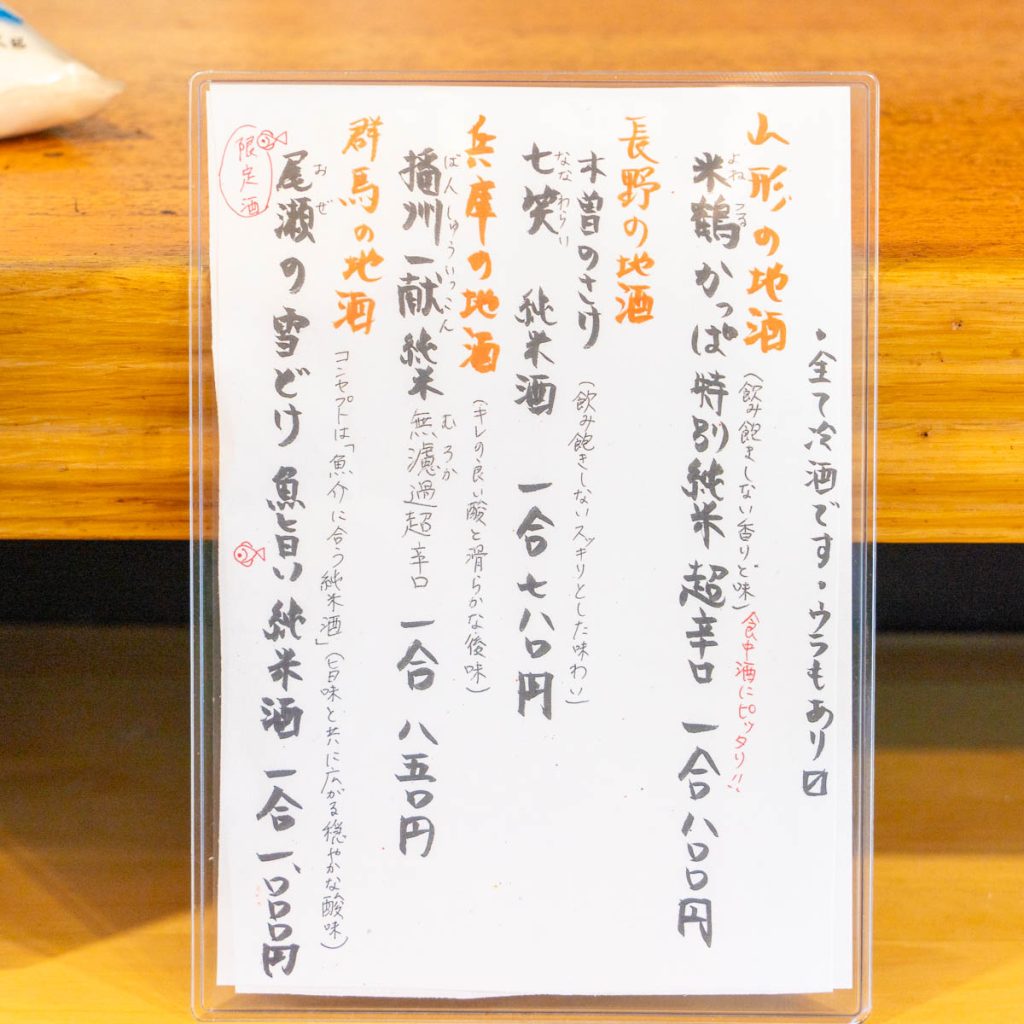 ・全て冷酒です・ウラもあり〼
山形の地酒
(飲み飽きしない香りと味)食中酒にピッタリ!!
よねつる
米鶴 かっぱ 特別純米 超辛口 一合 八〇〇円
長野の地酒
木曽のさけ (飲み飽きしないスッキリとした味わい)
なな わらい
七笑 純米酒 一合 七八〇円
兵庫の地酒 (キレの良い酸と滑らかな後味)
ばんしゅういっこん むろか
播州一献 純米 無濾過超辛口 一合 八五〇円
群馬の地酒 コンセプトは「魚介に合う純米酒」(旨味と共に広がる穏やかな酸味)
おぜ
尾瀬の雪どけ 魚旨い 純米酒 一合 一、〇〇〇円
限定酒